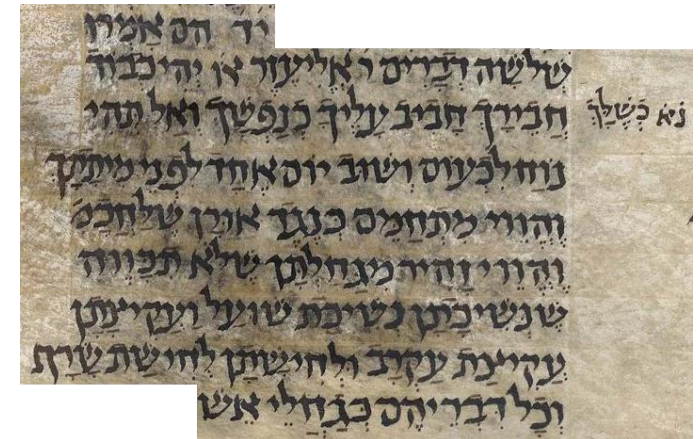 יד הם אמרו
שלשה דברים ר אליעזר או יהי כבוד
חבירך חביב עליך כנפשך ואל תהי
נא כשלך
נוח לכעוס ושוב יום אחד לפני מיתתך
והווי מתחמם כנגד אורן שלחכמ
והווי זהיר מגחלתן שלא תכווה
שנשיכתן נשיכת שועל ועקיצתן
עקיצת עקרב ולחישתן לחישת שרף
וכל דבריהם כגחלי אש